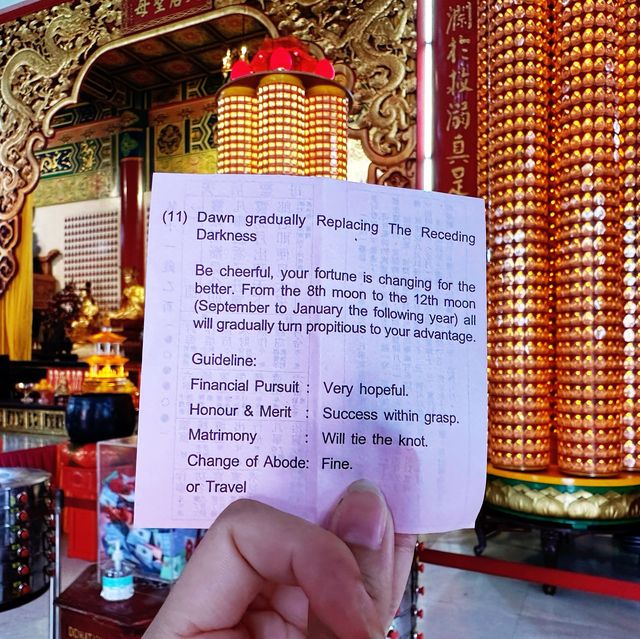 母聖后
(11) Dawn gradually Replacing The Receding
Darkness
Be cheerful, your fortune is changing for the
better. From the 8th moon to the 12th moon
(September to January the following year) all
will gradually turn propitious to your advantage.
Guideline:
Financial Pursuit : Very hopeful.
Honour & Merit : Success within grasp.
Matrimony : Will tie the knot.
Change of Abode: Fine.
or Travel
瀾溺真